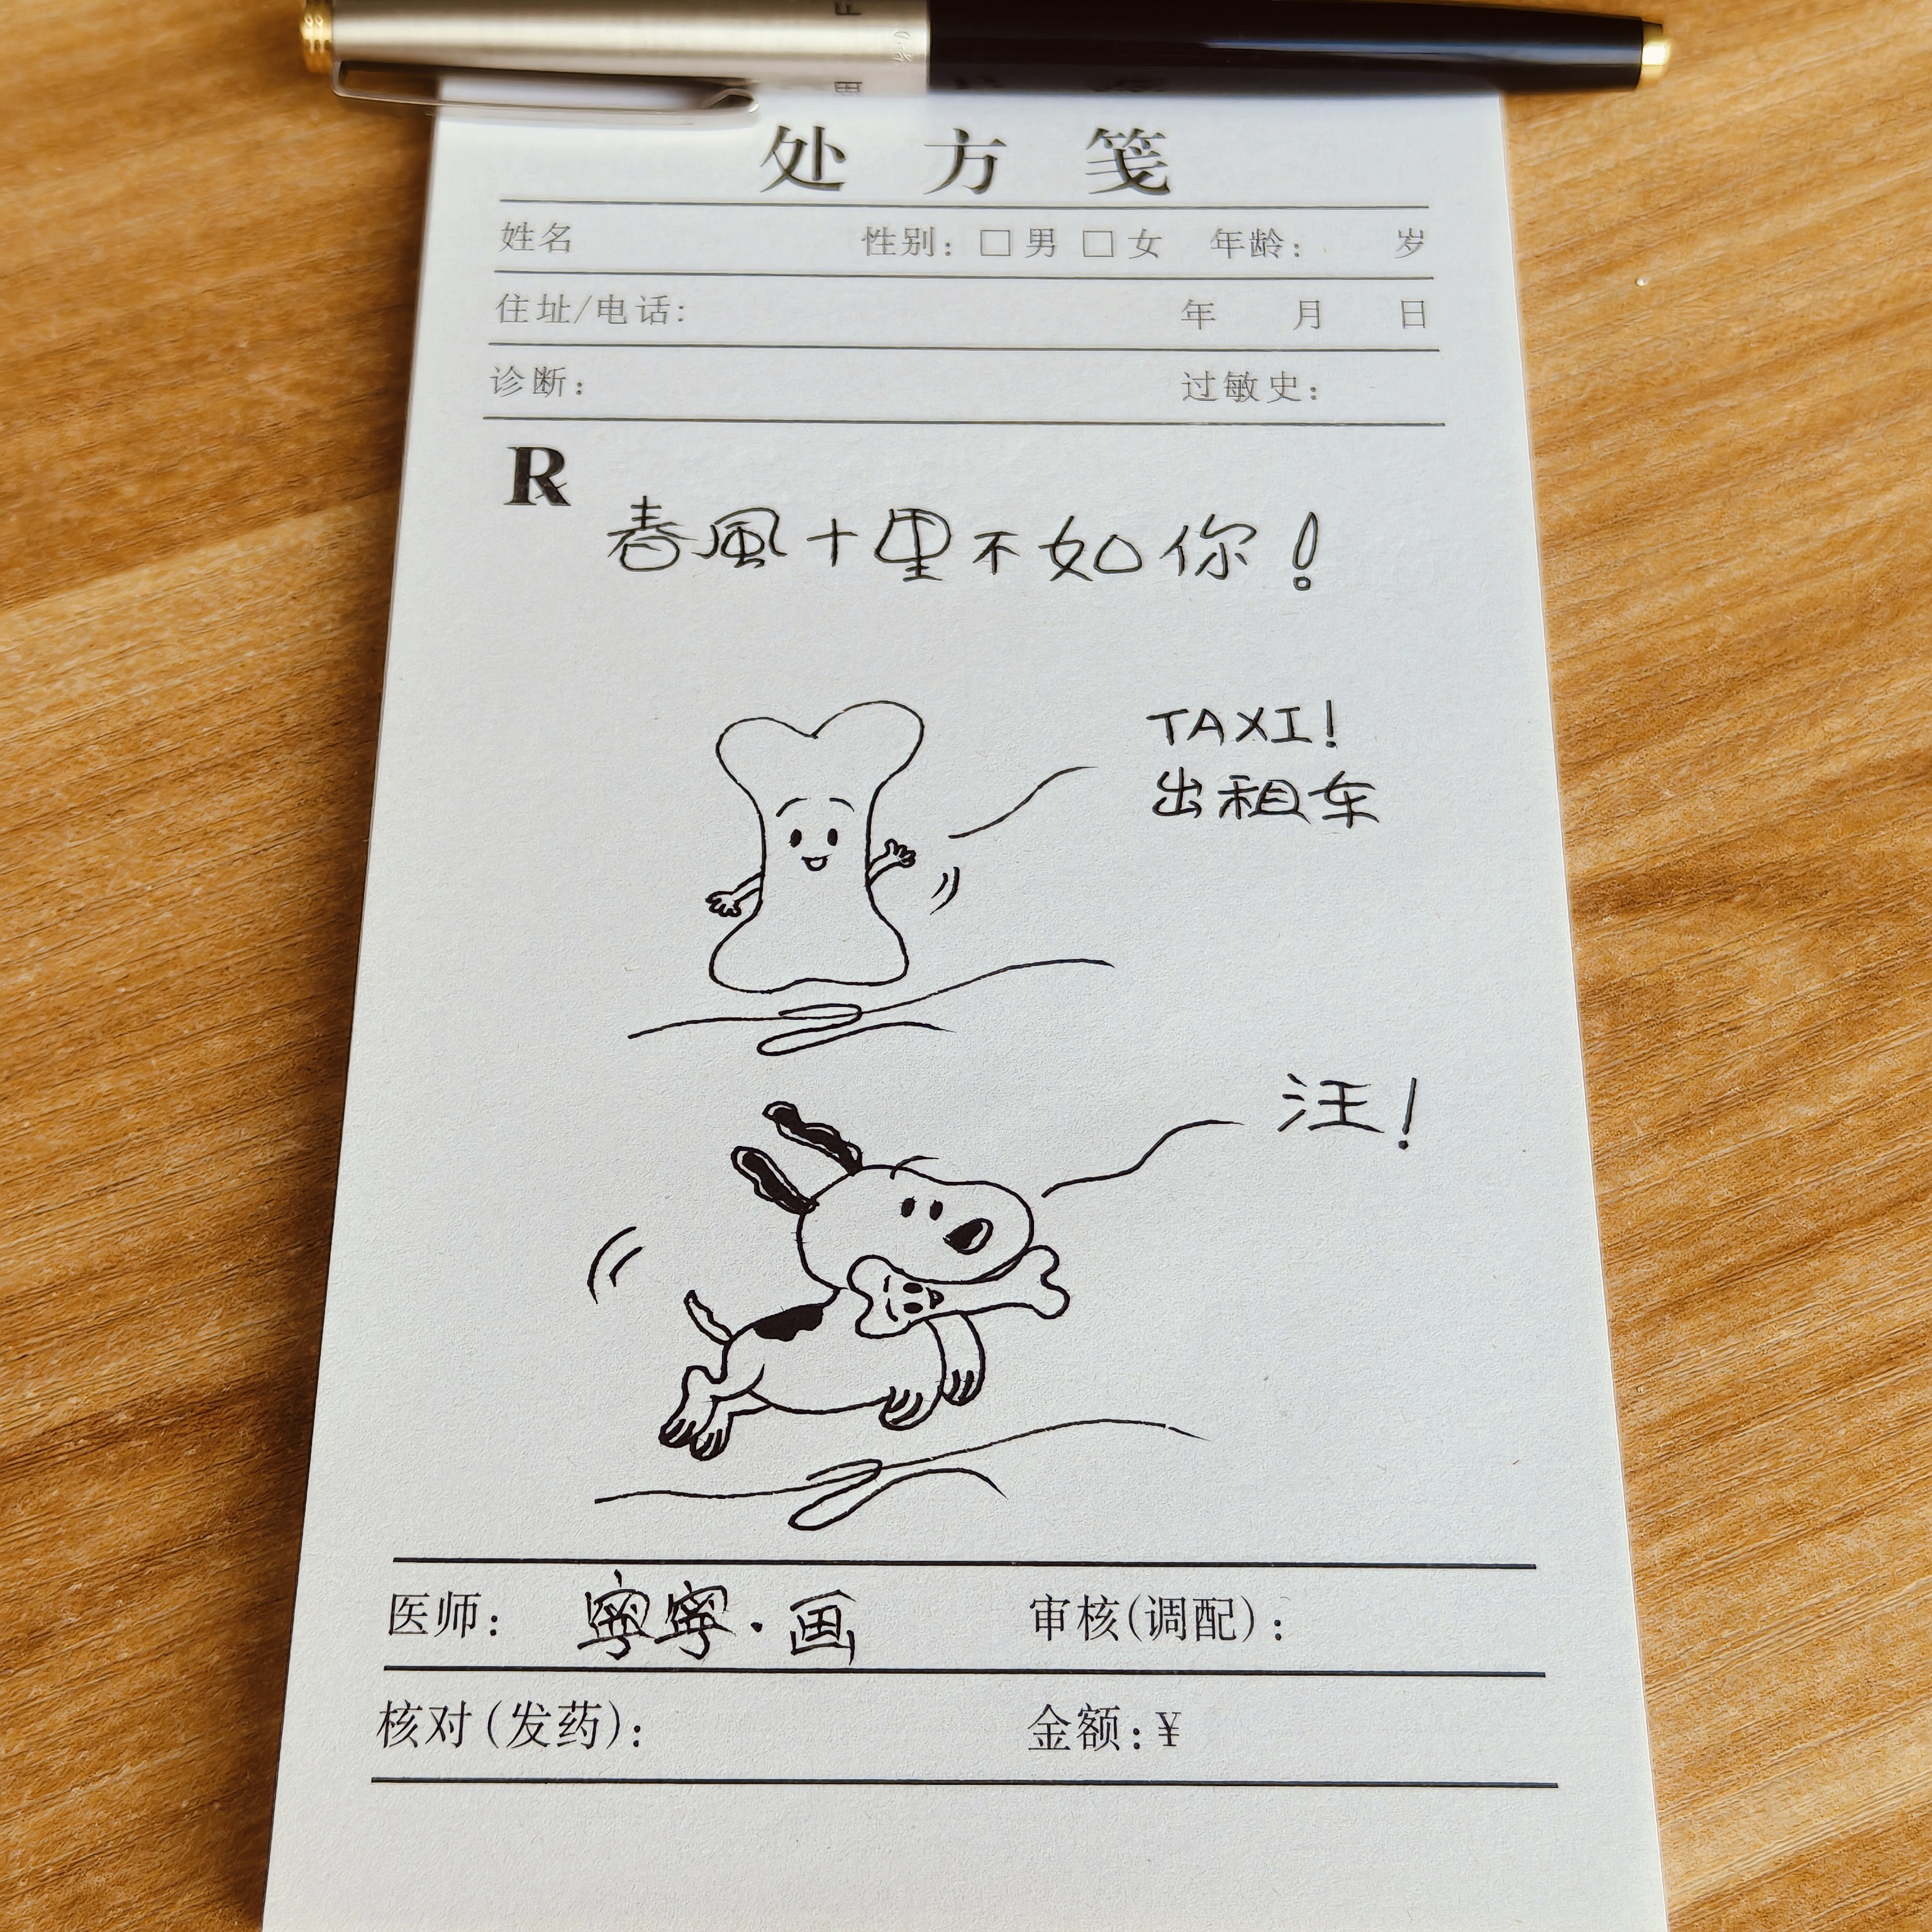 处方笺
姓名 性别: □男 □女 年龄: 岁
住址/电话: 年 月 日
诊断: 过敏史:
R
春風十里不如你!
TAXI!
出租车
汪!
医师: 寧寧·画 审核(调配):
核对(发药): 金额:¥